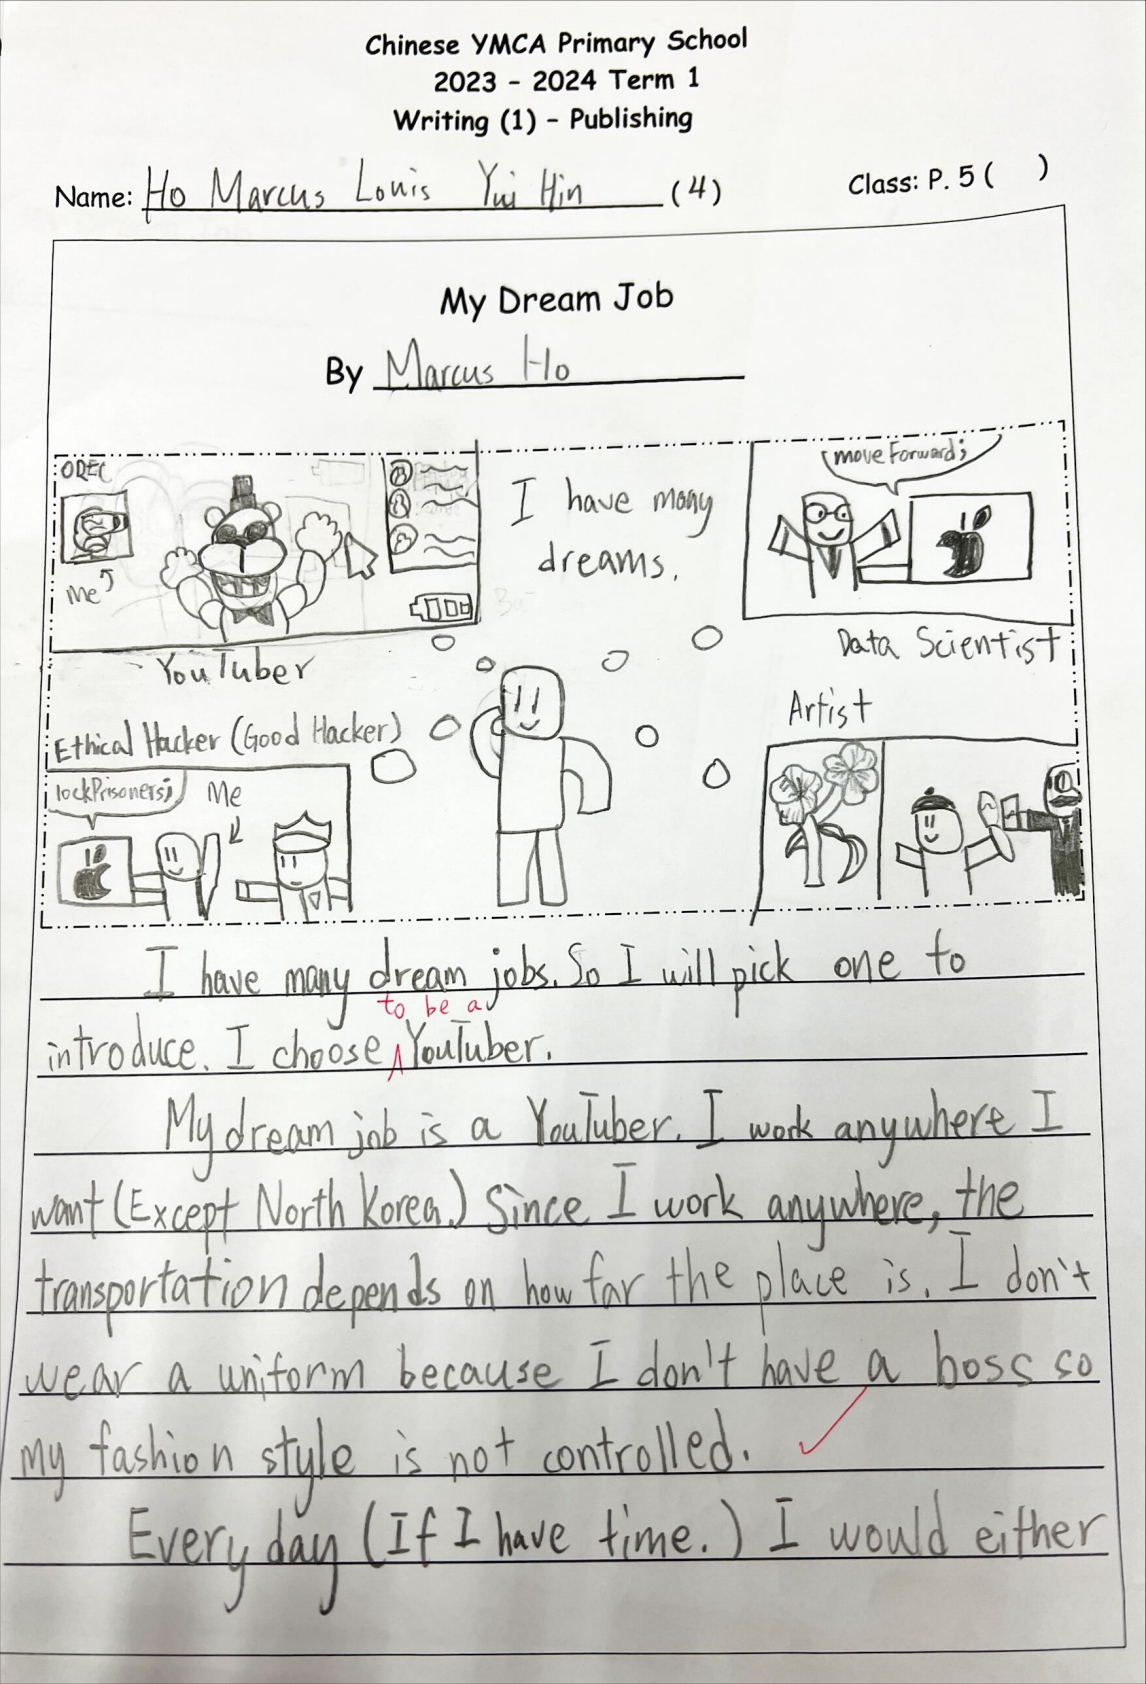 Chinese YMCA Primary School
2023 - 2024 Term 1
Writing (1) - Publishing
Name: Ho Marcus Louis Yui Hin (4)
Class: P. 5 ( )
My Dream Job
By Marcus Ho
OREC
Me
YouTuber
I have many
dreams.
moveForward;
Data Scientist
Ethical Hacker (Good Hacker)
lockPrisoners;
Me
Artist
I have many dream jobs. So I will pick one to
to be a
introduce. I choose YouTuber.
My dream job is a YouTuber. I work anywhere I
want (Except North Korea.) Since I work anywhere, the
transportation depends on how far the place is. I don't
wear a uniform because I don't have a boss so
my fashion style is not controlled.
Every day (If I have time.) I would either